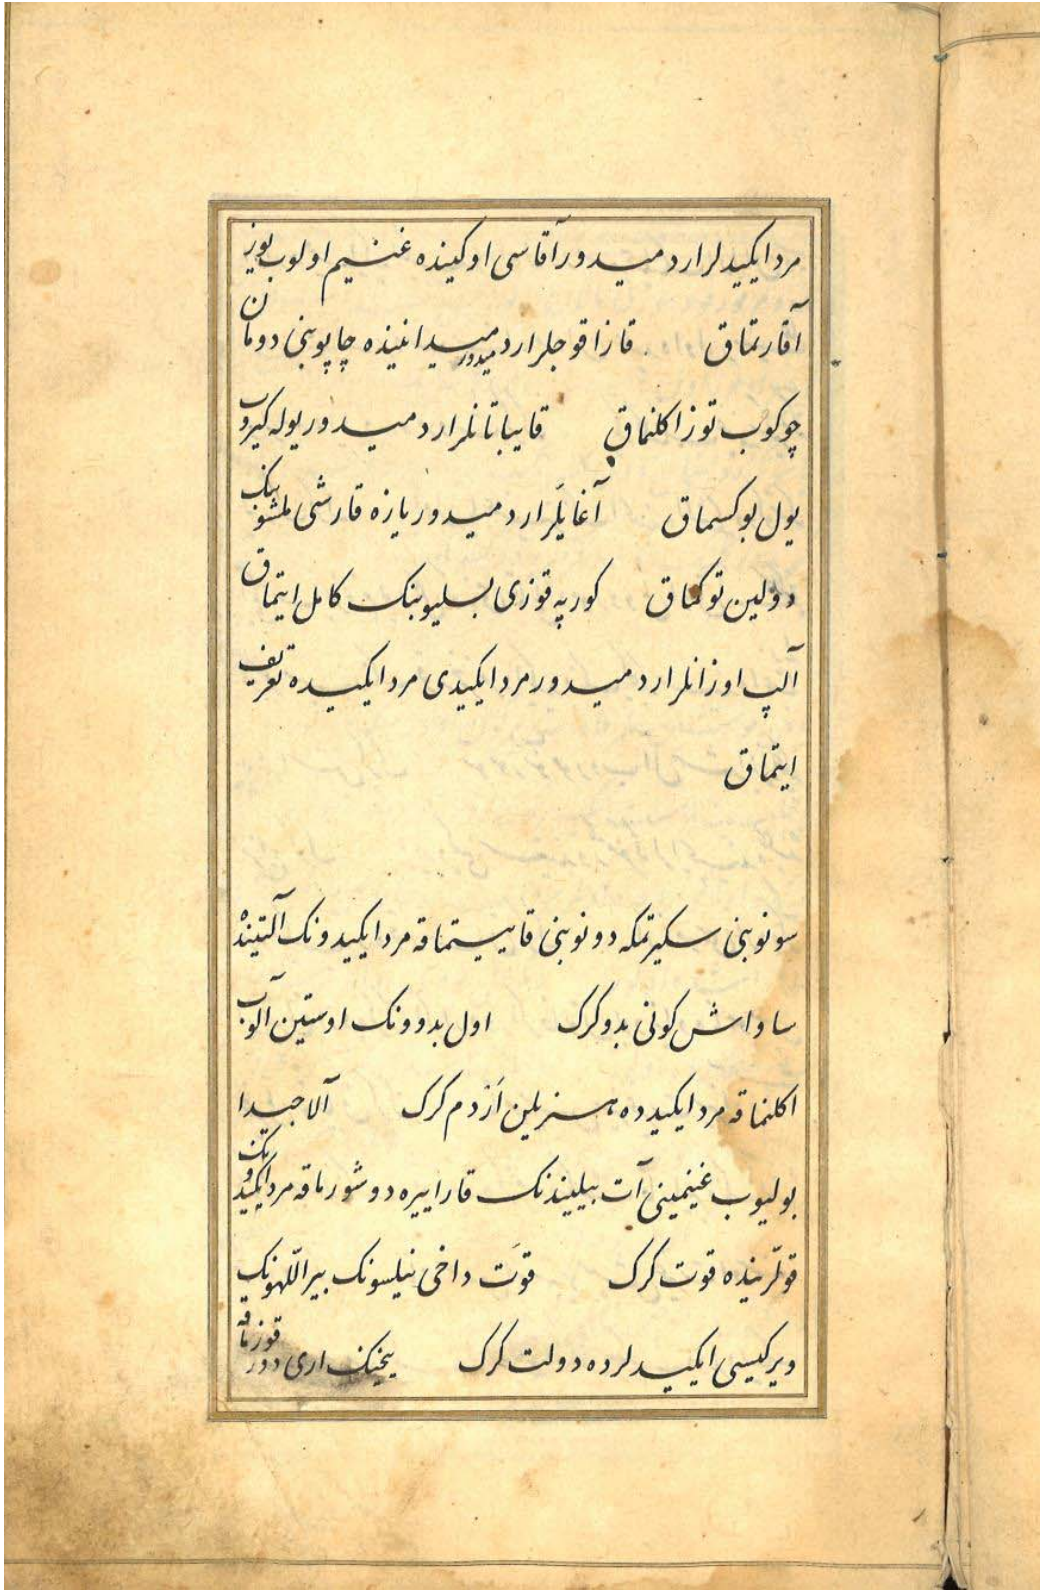 مرد ایکیدلر ارد میدور آقاسی اوکینده غنیم اولوب یوز
آقارتماق قازاقوجلر ارد میدور میدانینده چاپوبنی دومان
چوکوب توز اکلنماق قایباتانلر ارد میدور یوله کیروب
یول بوکسماق آغایلَر ارد میدور یازه قارشی
دولین توکماق کورپه قوزی بسلیوبنک کامل ایتماق
آلپ اوزانلر ارد میدور مرد ایکیدی مرد ایکیده تعریف
ایتماق
سونوبنی سکیرتمکه دونوبنی قاییتماقه مرد ایکیدونک آلتینده
ساواش کونی بدو کرک اول بدوونک اوستین آلوب
اکلنماقه مرد ایکیده هنریلن اَزدم کرک آلا جیدا
بولیوب غنیمینی آت بیلیندنک قارا ییره دوشورماقه مرد ایکیدونک
قوللرینده قوت کرک قوَت داخی نیلسونک بیر اللهونک
ویرکیسی ایکیدلرده دولت کرک یخینک اری دورقوزماقه